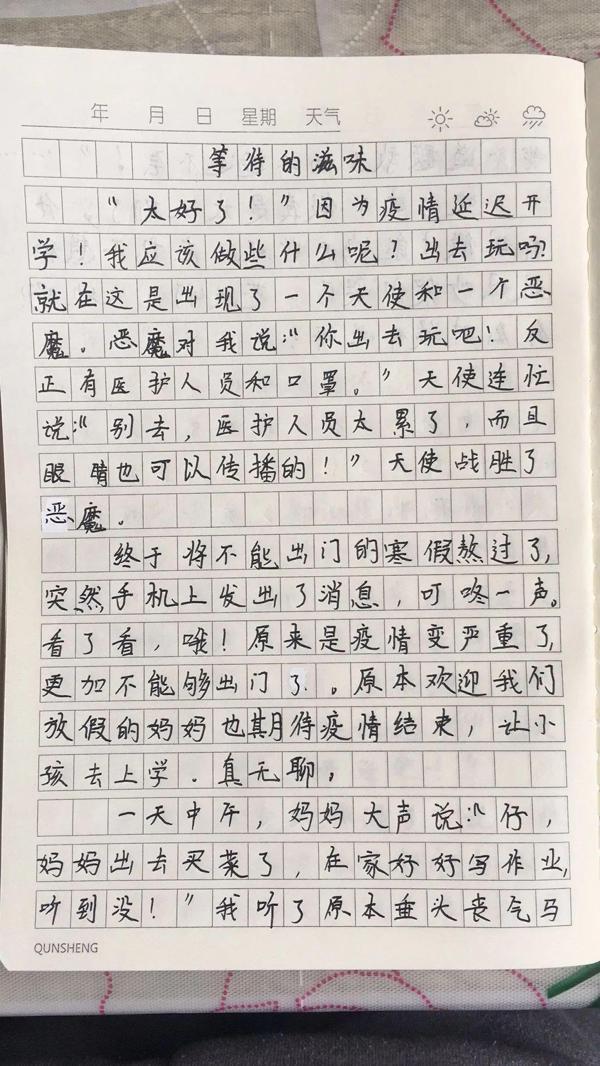 年 月 日 星期 天气
等待的滋味
“太好了！”因为疫情延迟开
学！我应该做些什么呢？出去玩吗？
就在这是出现了一个天使和一个恶
魔。恶魔对我说：“你出去玩吧！反
正有医护人员和口罩。”天使连忙
说：“别去，医护人员太累了，而且
眼睛也可以传播的！”天使战胜了
恶魔。
终于将不能出门的寒假熬过了，
突然手机上发出了消息，叮咚一声。
看了看，哦！原来是疫情变严重了，
更加不能够出门了。。原本欢迎我们
放假的妈妈也期待疫情结束，让小
孩去上学．真无聊，
一天中午，妈妈大声说：“仔，
妈妈出去买菜了，在家好好写作业，
听到没！”我听了原本垂头丧气马
QUNSHENG